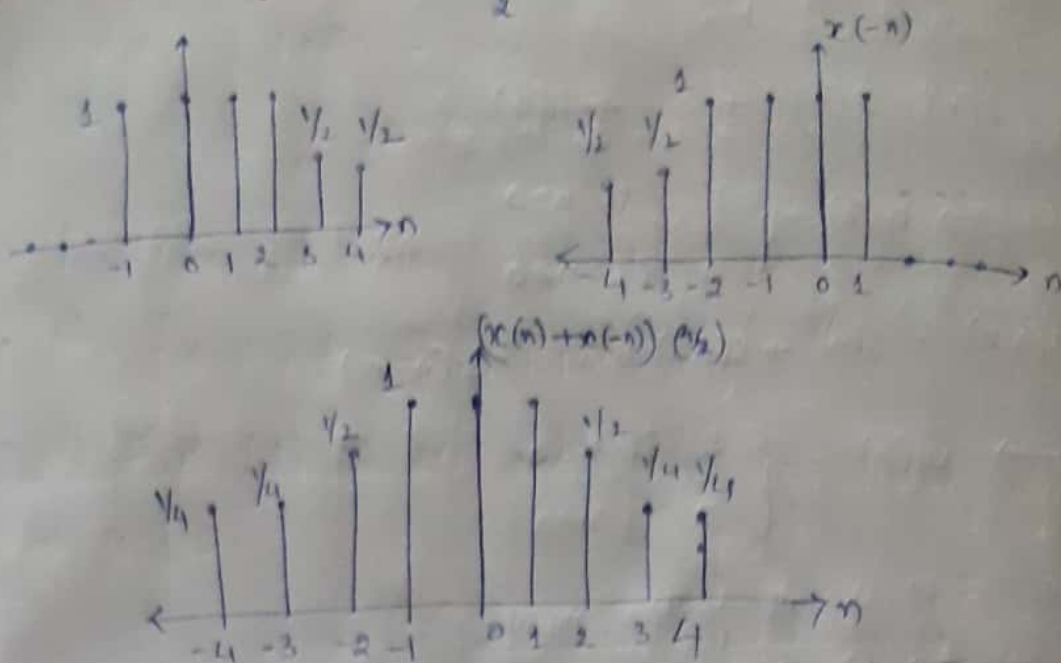 2
x(-n)
1 1/2 1/2
n
-1 0 1 2 3 4
1/2 1/2 1
-4 -3 -2 -1 0 1 n
(x(n)+x(-n))
1/4 1/4 1/2 1 1/2 1/4 1/4
n
-4 -3 -2 -1 0 1 2 3 4